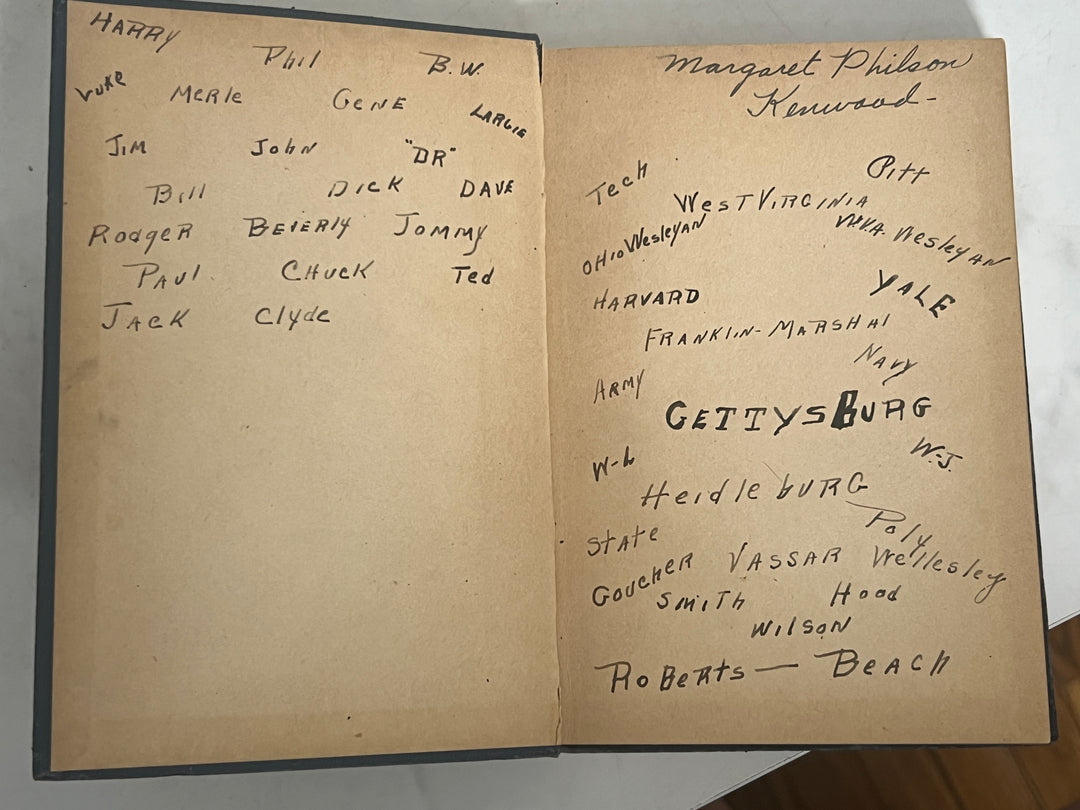 HARRY Phil B.W.
Merle GENE
JIM John "DR"
Bill DICK DAVE
RodgER BEVERly Tommy
PAUl CHucK Ted
JAcK Clyde
Margaret Philson
Kenwood-
Tech Pitt
WesT VIRGINIA
OHio Wesleyan W.VA. Wesleyan
HARVARD YALE
FRANKlIN-MARSHAl
ARMY NAVY
GETTYSBURG
W-L W.J.
HeidlebURG
STATe Poly
GoucHER VASSAR Wellesley
SMiTh Hood
WilsoN
RoBeRts — BeACH